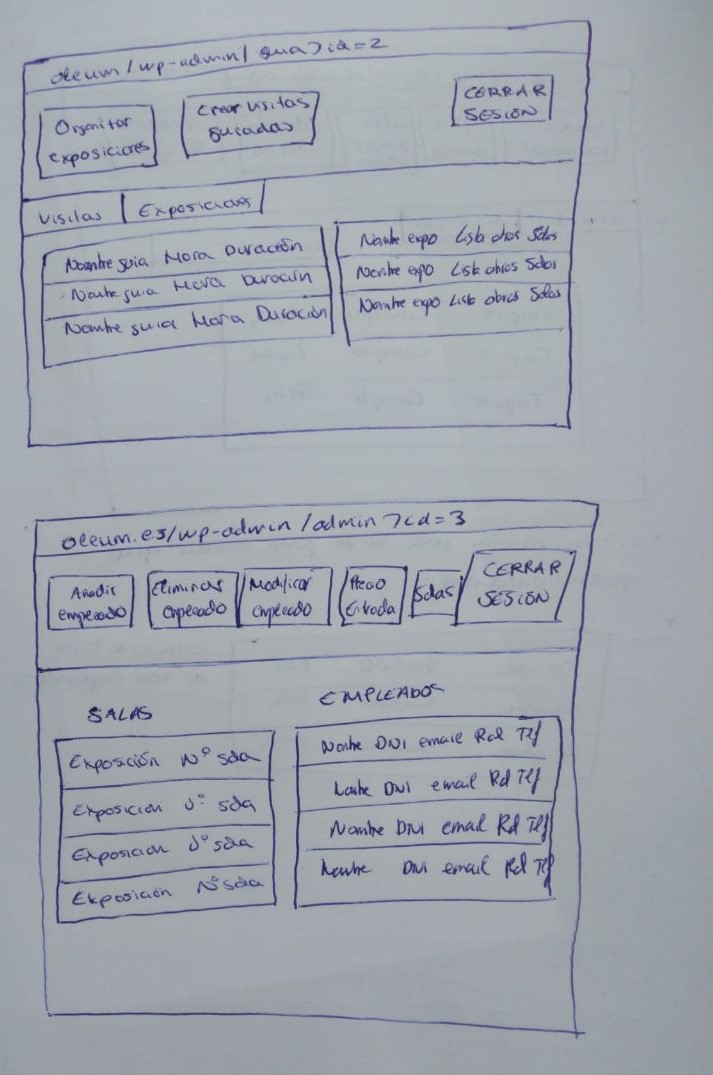 oleum/wp-admin/guia?id=2
Organizar
exposiciones
Crear visitas
guiadas
CERRAR
SESIÓN
Visitas
Exposiciones
Nombre guia Hora Duración
Nombre guia Hora Duración
Nombre guia Hora Duración
Nombre expo Lista obras Salas
Nombre expo Lista obras Salas
Nombre expo Lista obras Salas
oleum.es/wp-admin/admin?id=3
Añadir
empleado
Eliminar
empleado
Modificar
empleado
Precio
Entrada
Salas
CERRAR
SESIÓN
SALAS
Exposición Nº sala
Exposicion Nº sala
Exposicion Nº sala
Exposición Nº sala
EMPLEADOS
Nombre DNI email Rol Tlf
Nombre DNI email Rol Tlf
Nombre DNI email Rol Tlf
Nombre DNI email Rol Tlf